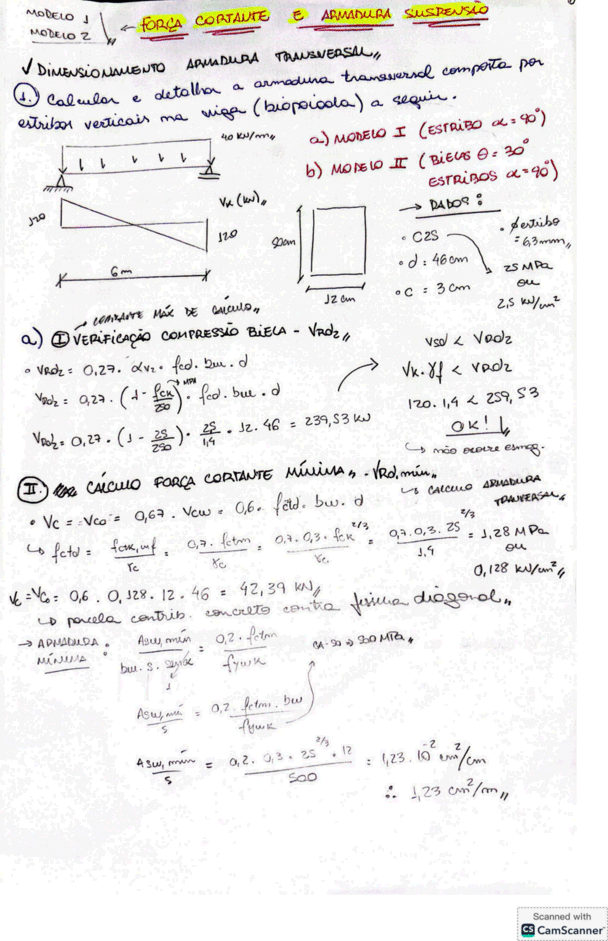 MODELO 1
MODELO 2
FORÇA CORTANTE E ARMADURA SUSPENSÃO
✓ DIMENSIONAMENTO ARMADURA TRANSVERSAL,,
1. Calcular e detalhar a armadura transversal composta por
estribos verticais na viga (biapoiada) a seguir.
40 KN/m,,
a) MODELO I (ESTRIBO α = 90°)
b) MODELO II (BIELAS θ = 30°
ESTRIBOS α = 90°)
Vk (kN),,
120
120
6m
50cm
12 cm
→ DADOS:
• C25
• d = 46 cm
• C = 3 cm
• ϕestribo
= 6,3mm,,
25 MPa
ou
2,5 kN/cm²
CORTANTE MÁX DE CÁLCULO,,
a) I VERIFICAÇÃO COMPRESSÃO BIELA - VRd2,,
• VRd2 = 0,27 . αv2 . fcd . bw . d
VRd2 = 0,27 . (1 - fck/250) . fcd . bw . d
→ MPa
VRd2 = 0,27 . (1 - 25/250) . 25/1,4 . 12 . 46 = 239,53 kN
Vsd < VRd2
Vk . γf < VRd2
120 . 1,4 < 259,53
OK!
↳ não ocorre esmag.
II. CÁLCULO FORÇA CORTANTE MÍNIMA,, - VRd,mín,,
↳ CALCULO ARMADURA
TRANSVERSAL,,
• Vc = Vco = 0,67 . Vcw = 0,6 . fctd . bw . d
↳ fctd = fctk,inf/γc = 0,7 . fctm/γc = 0,7 . 0,3 . fck^2/3/γc = 0,7 . 0,3 . 25^2/3/1,4 = 1,28 MPa
ou
0,128 kN/cm²,,
Vc = Vco = 0,6 . 0,128 . 12 . 46 = 42,39 kN,,
↳ parcela contrib. concreto contra fissura diagonal,,
→ ARMADURA MÍNIMA:
Asw,mín/bw . s . senα = 0,2 . fctm/fywk
CA-50 → 500 MPa,,
1
Asw,mín/s = 0,2 . fctm . bw/fywk
Asw,mín/s = 0,2 . 0,3 . 25^2/3 . 12/500 = 1,23 . 10^-2 cm²/cm
∴ 1,23 cm²/m,,
Scanned with
CS CamScanner